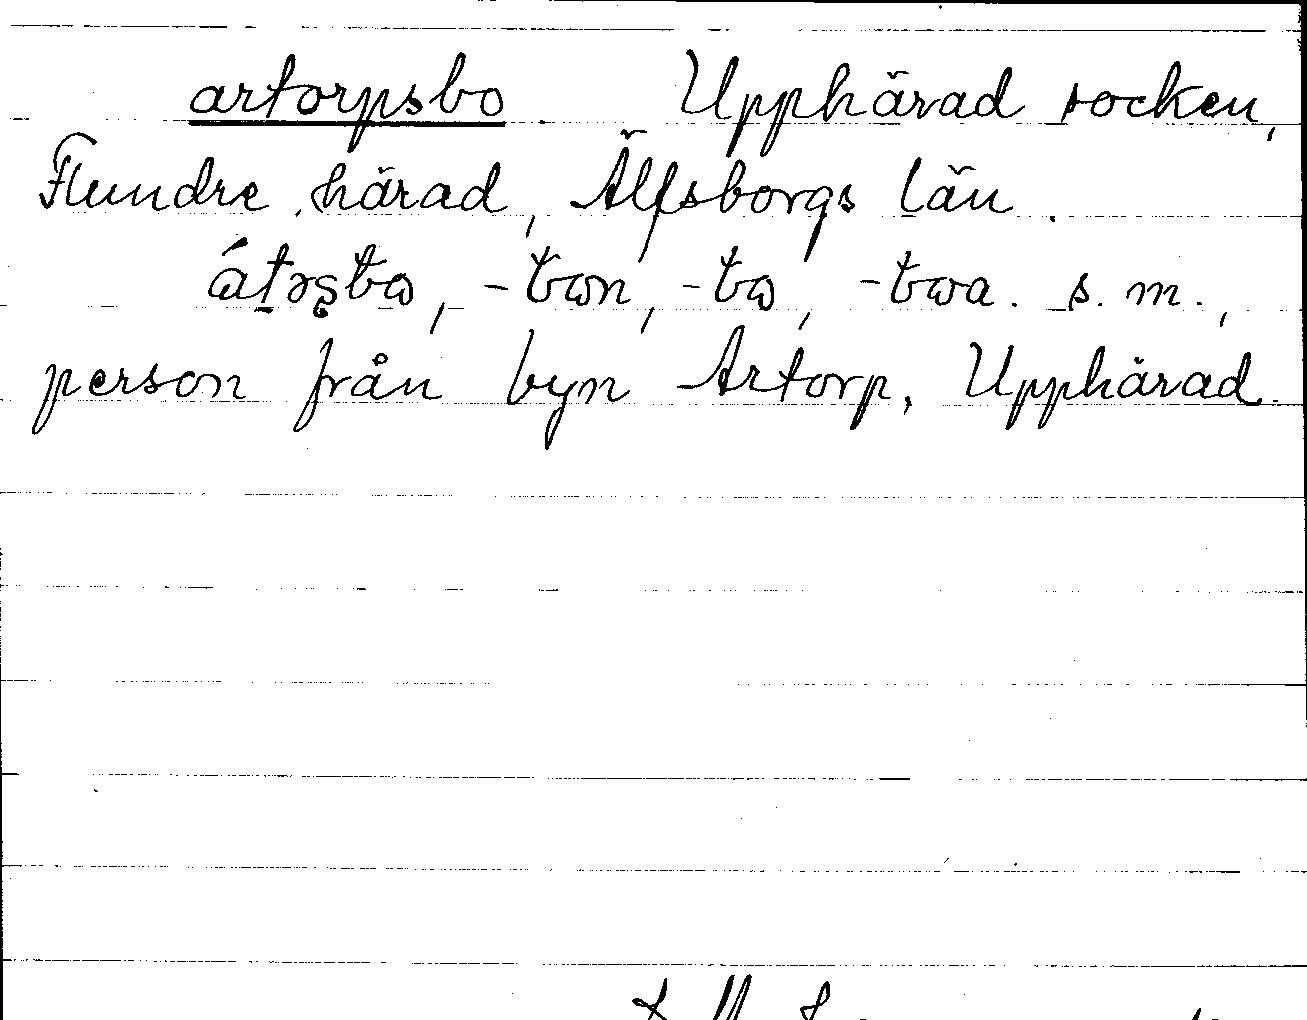 artorpsbo. Upphärad socken,
Flundre härad, Älfsborgs län.
s. m.,
person från byn Artorp, Upphärad.